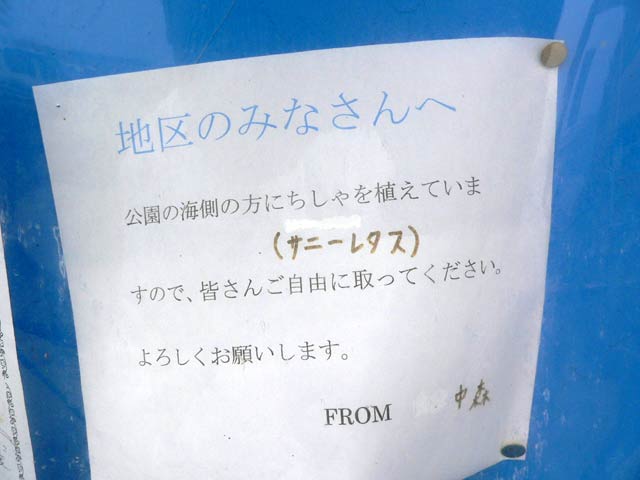 地区のみなさんへ
公園の海側の方にちしゃを植えていま
(サニーレタス)
すので、皆さんご自由に取ってください。
よろしくお願いします。
FROM 中森